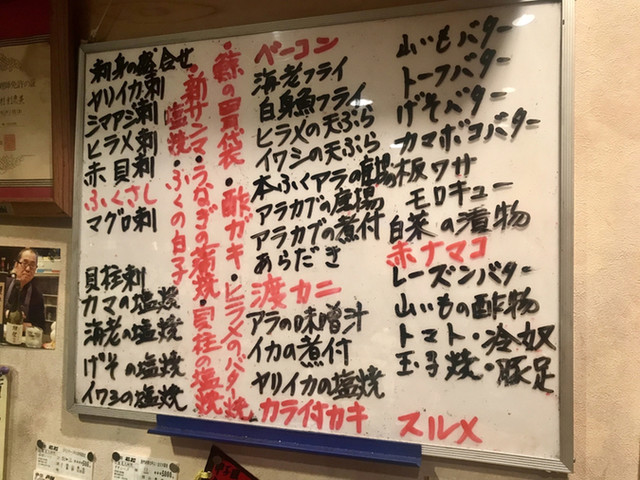 刺身の盛合せ
ヤリイカ刺
シマアジ刺
ヒラメ刺
赤貝刺
ふくさし
マグロ刺
貝柱刺
カマの塩焼
海老の塩焼
げその塩焼
イワシの塩焼
・鯨の胃袋・酢ガキ・ヒラメのバタ焼
・新サンマ・うなぎの蒲焼・貝柱の塩焼
塩焼・ふくの白子
ベーコン
海老フライ
白身魚フライ
ヒラメの天ぷら
イワシの天ぷら
本ふくアラの唐揚
アラカブの唐揚
アラカブの煮付
あらだき
渡カニ
アラの味噌汁
イカの煮付
ヤリイカの塩焼
カラ付カキ
山いもバター
トーフバター
げそバター
カマボコバター
板ワサ
モロキュー
白菜の漬物
赤ナマコ
レーズンバター
山いもの酢物
トマト・冷奴
玉子焼・豚足
スルメ